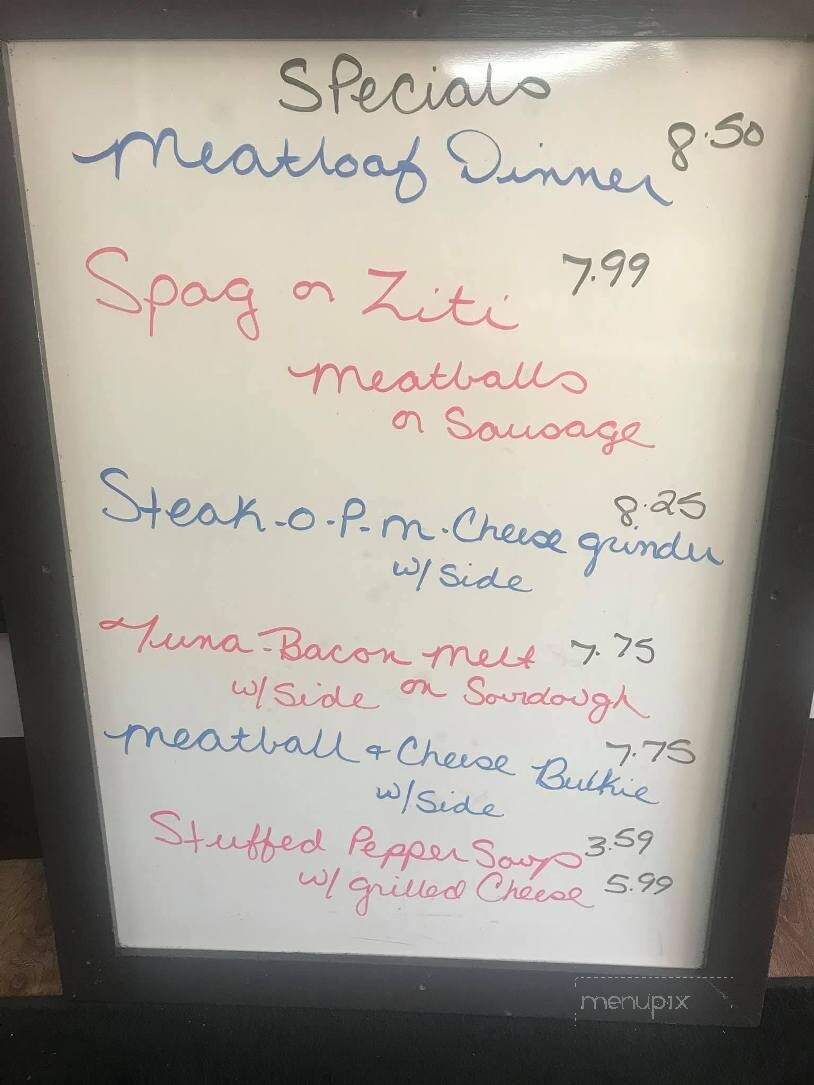 Specials
Meatloaf Dinner 8.50
Spag or Ziti 7.99
Meatballs
or Sausage
Steak-o.P.m.Cheese grinder 8.25
w/ Side
Tuna-Bacon Melt 7.75
w/ Side on Sourdough
Meatball & Cheese Bulkie 7.75
w/ Side
Stuffed Pepper Soup 3.59
w/ grilled Cheese 5.99
menupix